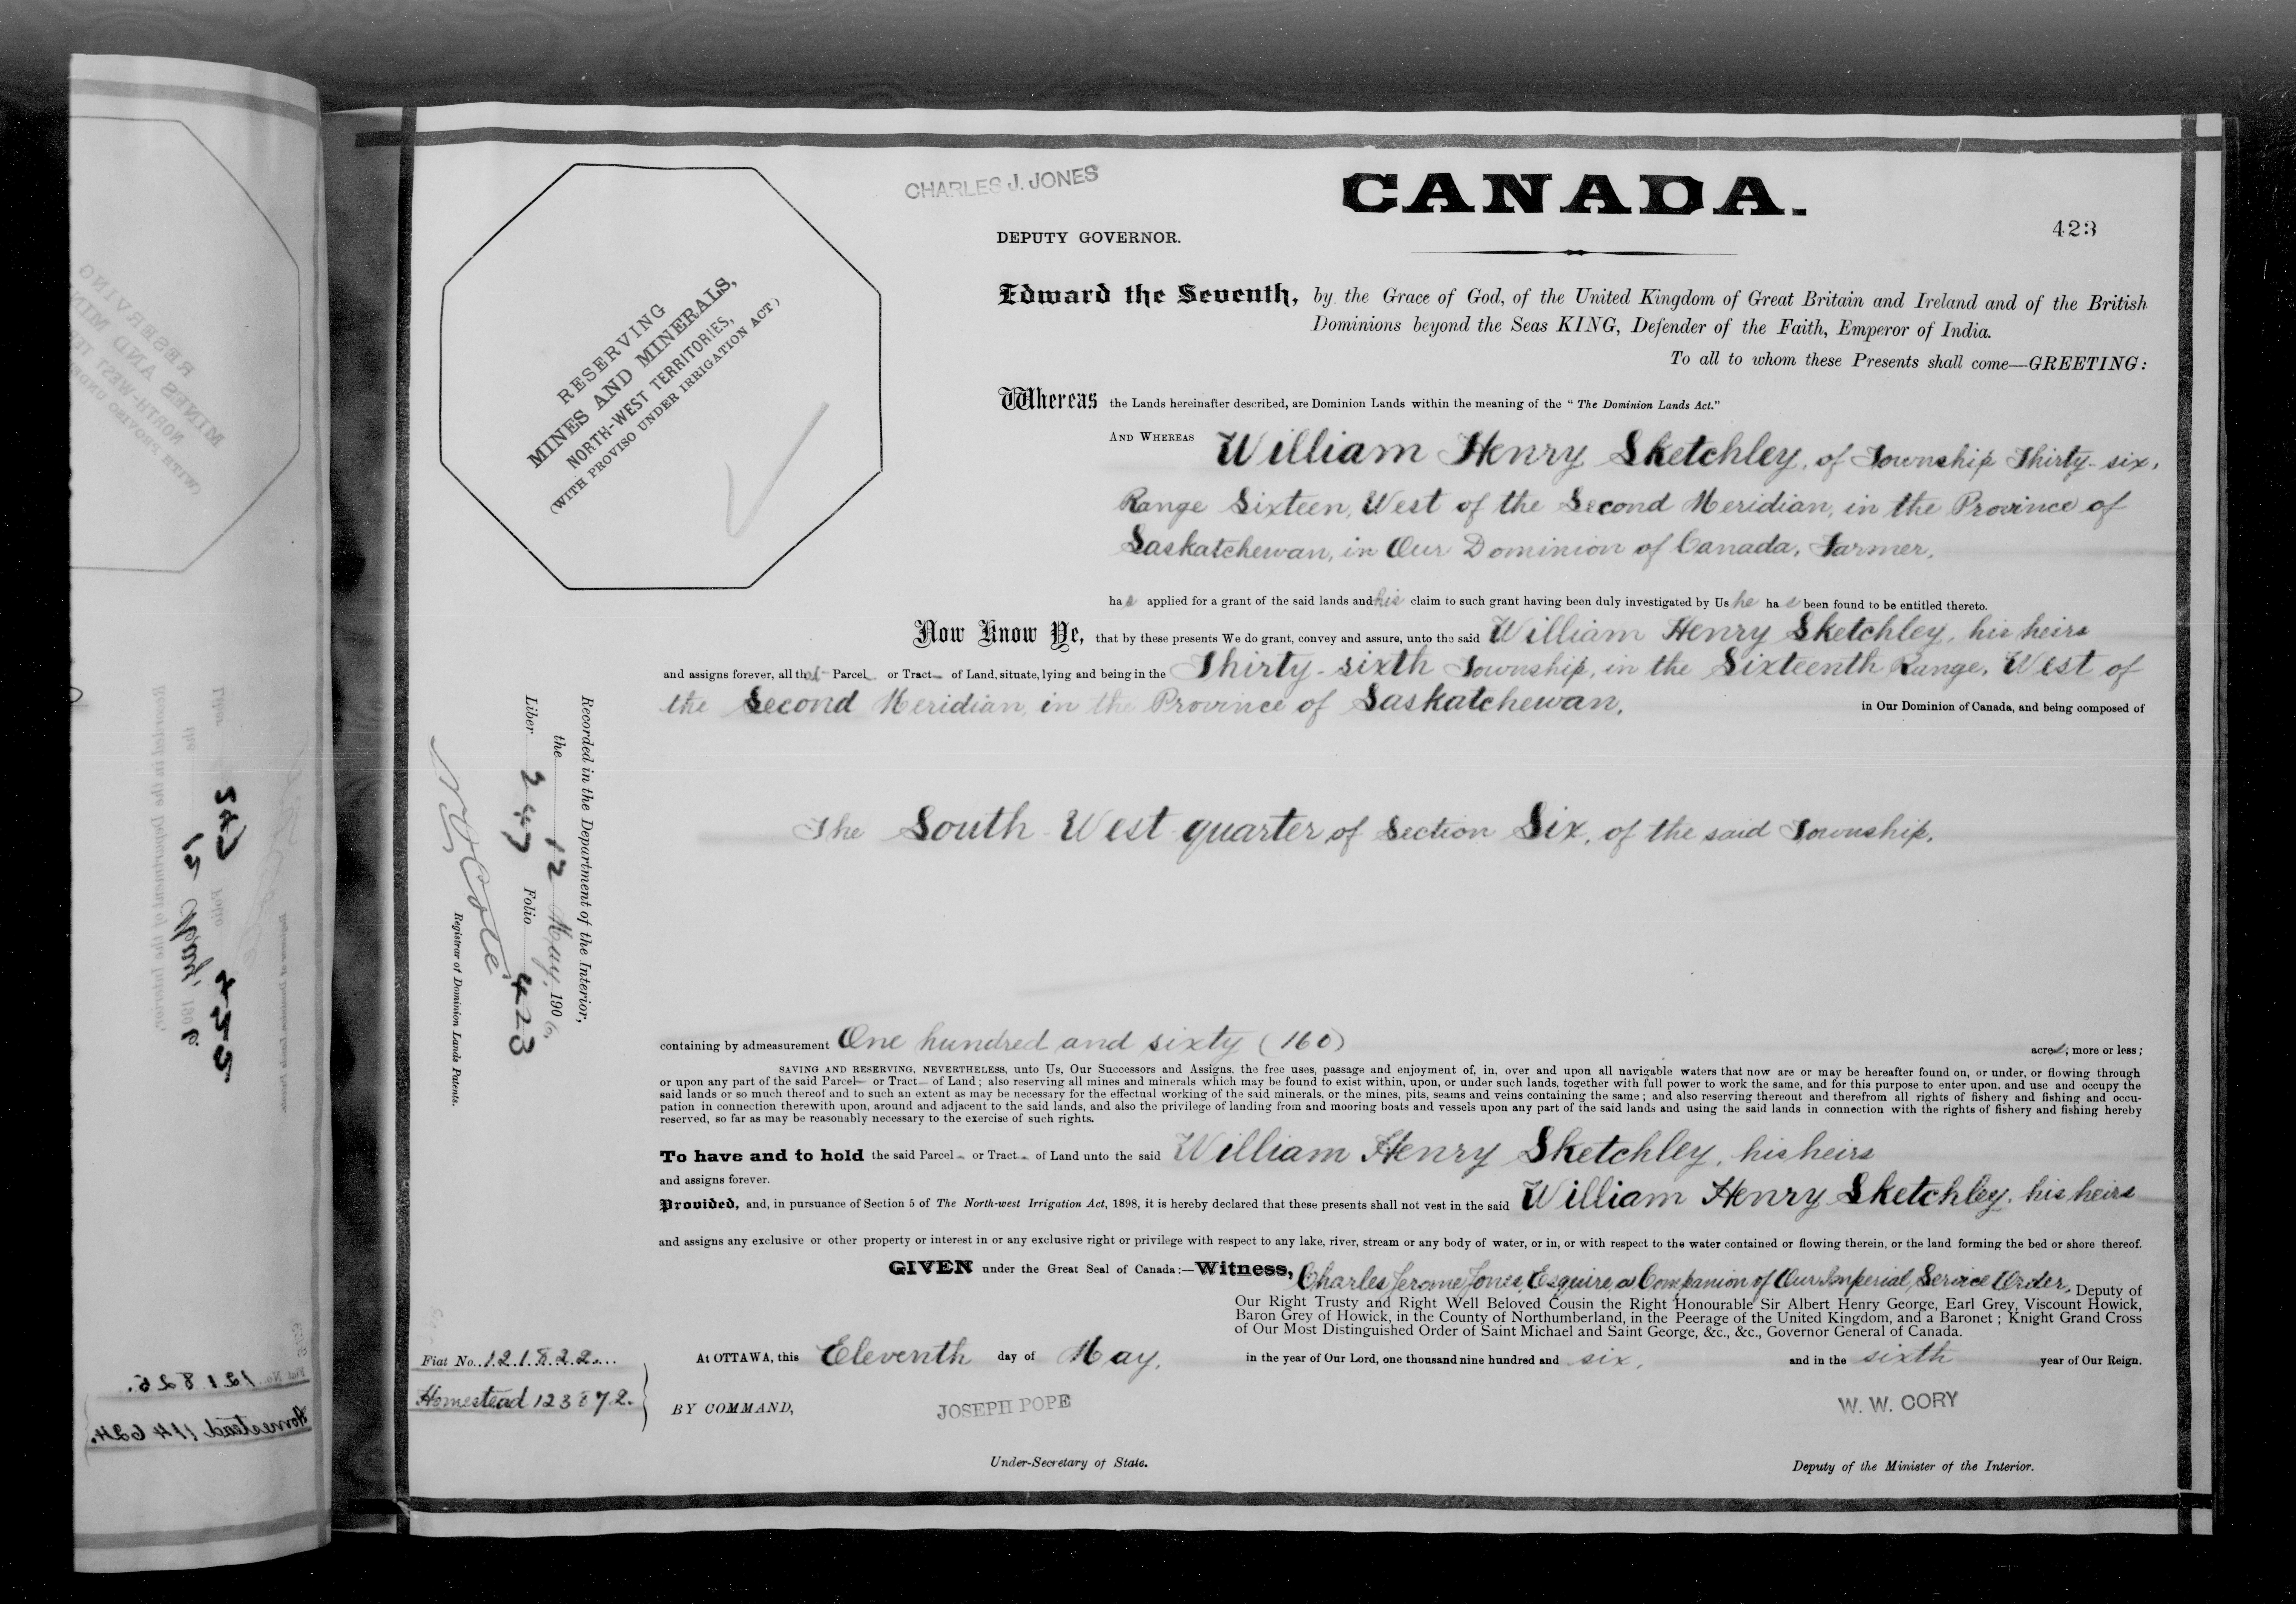 CHARLES J. JONES
CANADA.
DEPUTY GOVERNOR.
423
RESERVING
MINES AND MINERALS,
NORTH-WEST TERRITORIES,
(WITH PROVISO UNDER IRRIGATION ACT.)
Edward the Seventh, by the Grace of God, of the United Kingdom of Great Britain and Ireland and of the British
Dominions beyond the Seas KING, Defender of the Faith, Emperor of India.
To all to whom these Presents shall come—GREETING:
Whereas the Lands hereinafter described, are Dominion Lands within the meaning of the "The Dominion Lands Act."
AND WHEREAS William Henry Sketchley, of Township Thirty-six,
Range Sixteen, West of the Second Meridian, in the Province of
Saskatchewan, in Our Dominion of Canada, Farmer,
has applied for a grant of the said lands and his claim to such grant having been duly investigated by Us he has been found to be entitled thereto.
Now Know Ye, that by these presents We do grant, convey and assure, unto the said William Henry Sketchley, his heirs
and assigns forever, all that Parcel or Tract of Land, situate, lying and being in the Thirty-sixth Township, in the Sixteenth Range, West of
the Second Meridian, in the Province of Saskatchewan, in Our Dominion of Canada, and being composed of
The South West quarter of Section Six, of the said Township,
Recorded in the Department of the Interior,
the 12 May, 1906,
Liber 247 Folio 423
N O Coté
Registrar of Dominion Lands Patents.
containing by admeasurement One hundred and sixty (160) acres; more or less;
SAVING AND RESERVING, NEVERTHELESS, unto Us, Our Successors and Assigns, the free uses, passage and enjoyment of, in, over and upon all navigable waters that now are or may be hereafter found on, or under, or flowing through
or upon any part of the said Parcel or Tract of Land; also reserving all mines and minerals which may be found to exist within, upon, or under such lands, together with full power to work the same, and for this purpose to enter upon, and use and occupy the
said lands or so much thereof and to such an extent as may be necessary for the effectual working of the said minerals, or the mines, pits, seams and veins containing the same; and also reserving thereout and therefrom all rights of fishery and fishing and occu-
pation in connection therewith upon, around and adjacent to the said lands, and also the privilege of landing from and mooring boats and vessels upon any part of the said lands and using the said lands in connection with the rights of fishery and fishing hereby
reserved, so far as may be reasonably necessary to the exercise of such rights.
To have and to hold the said Parcel or Tract of Land unto the said William Henry Sketchley, his heirs
and assigns forever.
Provided, and, in pursuance of Section 5 of The North-west Irrigation Act, 1898, it is hereby declared that these presents shall not vest in the said William Henry Sketchley, his heirs
and assigns any exclusive or other property or interest in or any exclusive right or privilege with respect to any lake, river, stream or any body of water, or in, or with respect to the water contained or flowing therein, or the land forming the bed or shore thereof.
GIVEN under the Great Seal of Canada:—Witness, Charles Jerome Jones, Esquire, a Companion of Our Imperial Service Order, Deputy of
Our Right Trusty and Right Well Beloved Cousin the Right Honourable Sir Albert Henry George, Earl Grey, Viscount Howick,
Baron Grey of Howick, in the County of Northumberland, in the Peerage of the United Kingdom, and a Baronet; Knight Grand Cross
of Our Most Distinguished Order of Saint Michael and Saint George, &c., &c., Governor General of Canada.
At OTTAWA, this Eleventh day of May, in the year of Our Lord, one thousand nine hundred and six, and in the sixth year of Our Reign.
Fiat No. 121822.
Homestead 123872.
BY COMMAND,
JOSEPH POPE
W. W. CORY
Under-Secretary of State.
Deputy of the Minister of the Interior.